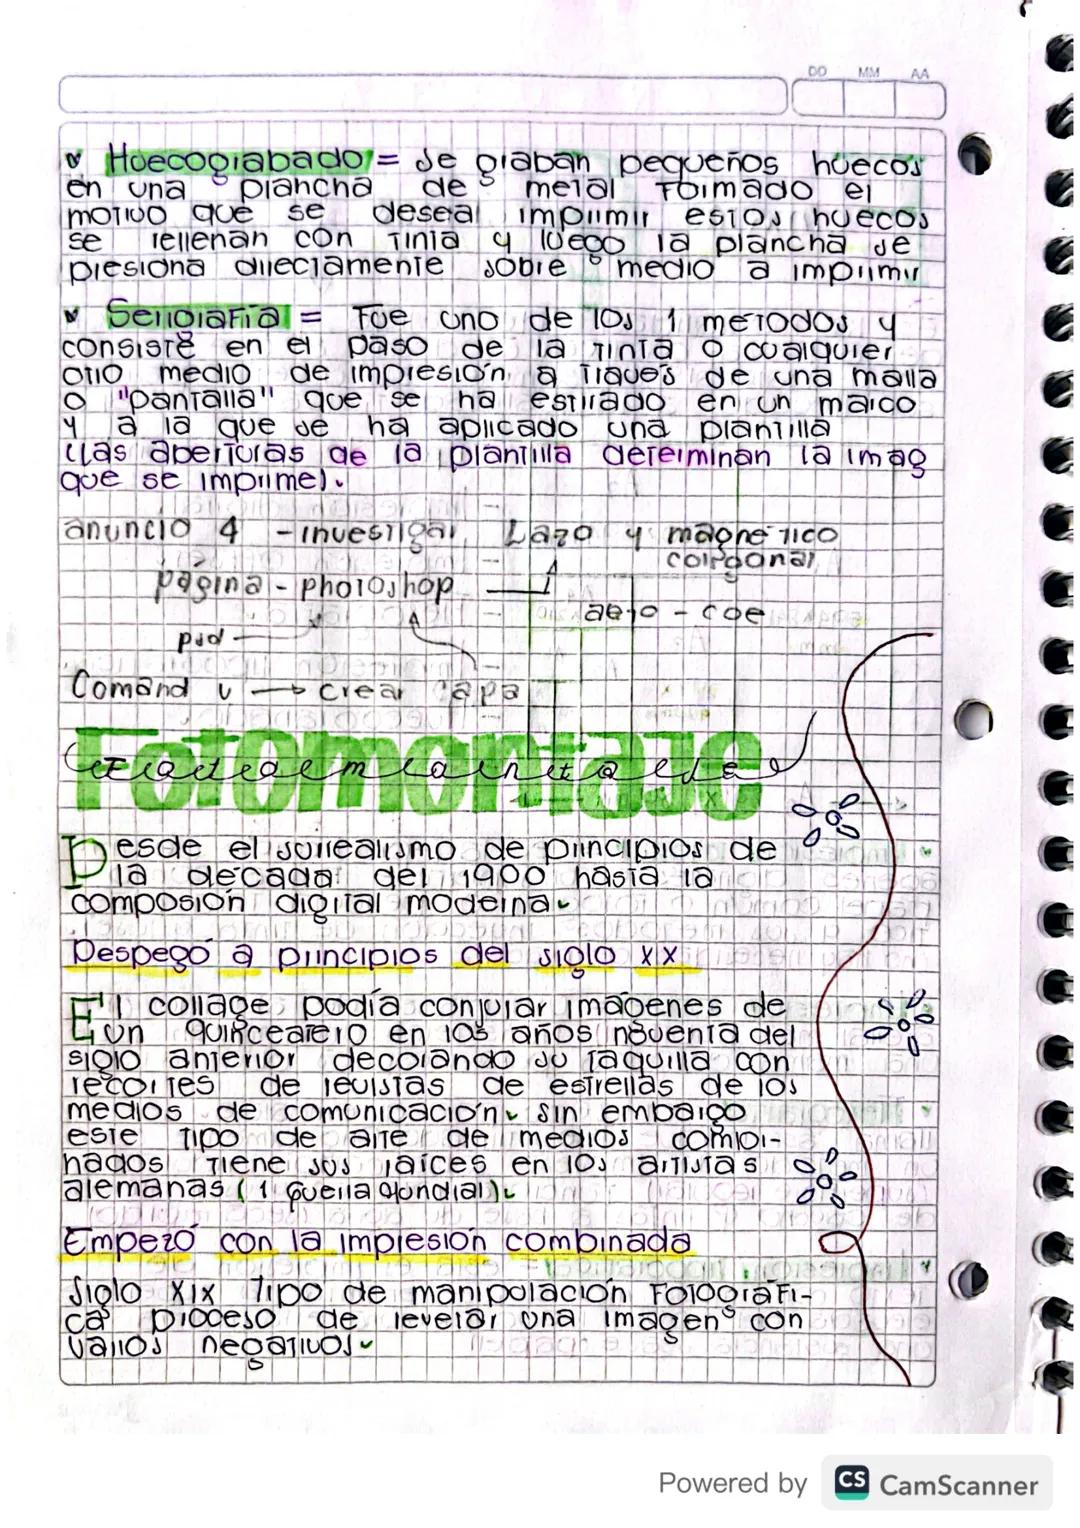 DD MM AA
Huecograbado = se graban pequeños huecos
en una plancha de metal formado el
motivo que se desea imprimir estos huecos
se rellenan con tinta y luego la plancha se
presiona directamente sobre medio a imprimir
Serigrafía = Fue uno de los 1 metodos y
consiste en el paso de la tinta o cualquier
otro medio de impresión a traves de una malla
o "pantalla" que se ha estirado en un marco
y a la que se ha aplicado una plantilla
(las aberturas de la plantilla determinan la imag
que se imprime).
anuncio 4 - investigar Lazo y magnetico
pagina - photoshop
psd
Comand → crear capa
Fotomontaje
Desde el surrealismo de principios de
la decada del 1900 hasta la
composión digital moderna.
Despegó a principios del siglo XX
El collage podía conjurar imagenes de
un quinceañero en los años noventa del
siglo anterior decorando su taquilla con
recortes de revistas de estrellas de los
medios de comunicación. Sin embargo
este tipo de arte de medios combi-
nados tiene sus raíces en los artistas
alemanas (1 guerra Mundial).
Empezó con la impresión combinada
Siglo XIX tipo de manipolación Fotografi-
ca proceso de revelar una imagen con
varios negativos.
Powered by CS CamScanner